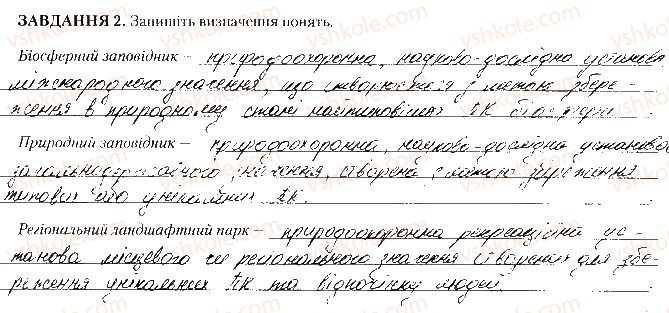 ЗАВДАННЯ 2. Запишіть визначення понять.
Біосферний заповідник – природоохоронна, науково-дослідна установа
міжнародного значення, що створюється з метою збере-
ження в природному стані найтиповіших ПК біосфери.
Природний заповідник – природоохоронна, науково-дослідна установа
загальнодержавного значення, створена з метою збереження
типових або унікальних ПК.
Регіональний ландшафтний парк – природоохоронна рекреаційна ус-
танова місцевого чи регіонального значення створена для збе-
реження унікальних ПК та відпочинку людей.